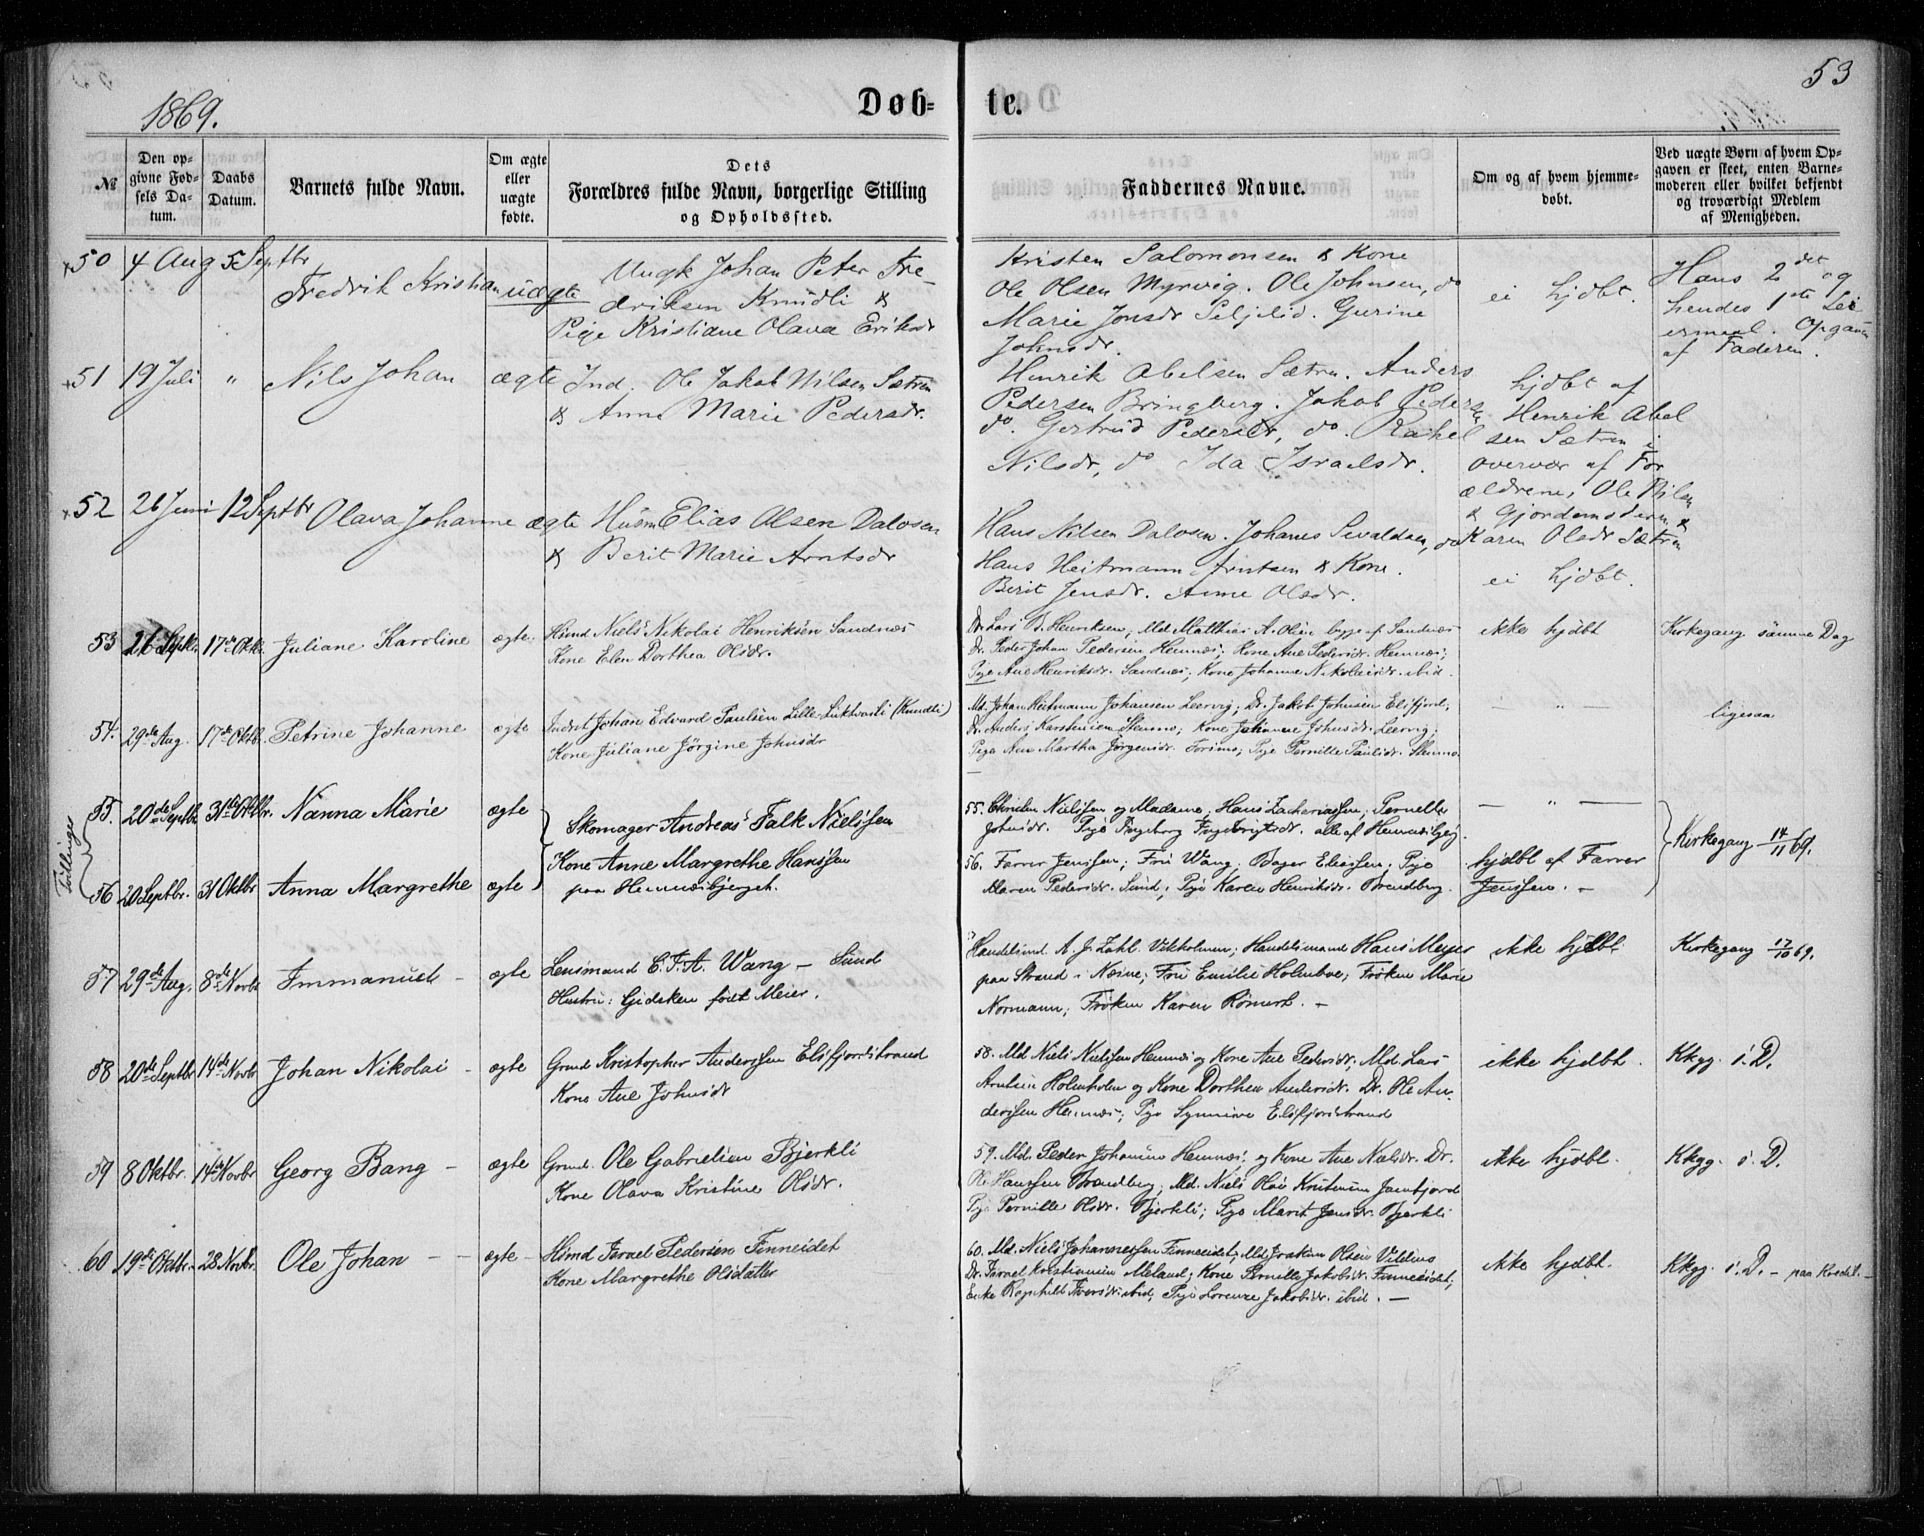 53
1869.
Døb-
te.
№
Den op-
givne Fød-
sels Da-
tum.
Daabs
Datum.
Barnets fulde Navn.
Om ægte
eller
uægte
fødte.
Dets
Forældres fulde Navn, borgerlige Stilling
og Opholdssted.
Faddernes Navne.
Om og af hvem hjemme-
døbt.
Ved uægte Børn af hvem Op-
gaven er skeet, enten Barne-
moderen eller hvilket bekjendt
og troværdigt Medlem
af Menigheden.
50 4 Aug 5 Septbr
Fredrik Kristian uægte
Ungk Johan Peter Fre-
driksen Knudli &
Pige Kristiane Olava Eriksdr
Kristen Salomonsen & Kone
Ole Olsen Myrvig. Ole Johnsen, do
Marie Jonsdr Seljelid. Gurine
Johnsdr.
ei hjdbt.
Hans 2det og
hendes 1ste Lei
ermaal. Opgaven
af Faderen.
51 19 Juli " Nils Johan ægte
Ind. Ole Jakob Nilsen Sætren
& Anne Marie Pedersdr.
Henrik Abelsen Sætren. Anders
Pedersen Bringberg. Jakob Peders
do. Gertrud Pedersdr, do. Rakel
Nilsdr, do Ida Israelsdr.
hjdbt af
Henrik Abel
sen Sætren i
overvær af For
ældrene, Ole Nilsen
& Gjordemoderen &
Karen Olsdr Sætren
52 26 Juni 12 Septbr Olava Johanne ægte
Husm Elias Olsen Dalosen
& Berit Marie Arntsdr
Hans Nilsen Dalosen. Johanes Sivaldsen, do
Hans Heitmann Arntsen & Kone.
Berit Jensdr. Anne Olsdr.
ei hjdbt.
53 26 Septb. 17de Oktb. Juliane Karoline ægte.
Hsmd Niels Nikolai Henriksen Sandnæs
Kone Elen Dorthea Olsdr.
Dr. Lars B. Henriksen, Md. Matthias A. Olsen begge af Sandnæs
Dr. Peder Johan Pedersen Hemnæs; Kone Ane Pedersdr. Hemnæs;
Pige Ane Henriksdr. Sandnæs; Kone Johanne Nikolaisdr. ibid.
ikke hjdbt
Kirkegang samme Dag
54. 29de Aug. 17de Oktb. Petrine Johanne ægte
Indrst Johan Edvard Paulsen Lille-Luktvasli (Knudli)
Kone Juliane Jörgine Johnsdr
Md. Johan Heitmann Johansen Leervig; Dr. Jakob Johnsen Elsfjord;
Dr. Anders Karstensen Stenmo; Kone Johanne Johnsdr. Leervig;
Pige Ane Martha Jörgensdr. Forsmo; Pige Pernille Paulsdr. Stenmo.
— " —
ligesaa
Tvillinger
55. 20de Septbr. 31te Oktbr. Nanna Marie ægte
Skomager Andreas Falk Nielssen
Kone Anne Margrethe Hanssen
paa Hemnæsbjerget.
55. Christen Nielssen og Madame, Hans Zachariassen; Pernelle
Johnsdr. Pige Ingeborg Ingebrigtsdr. alle af Hemnæsbjerg.
— " —
Kirkegang 14/11 69.
56 20 Septbr. 31 Oktbr Anna Margrethe ægte
56. Farver Jenssen; Fru Wang; Bager Eliassen; Pige
Maren Pedersdr. Sund; Pige Karen Henriksdr. Brendberg.
hjdbt af Farver
Jenssen.
57 29de Aug. 8de Novb. Immanuel – ægte
Lensmand C. F. A. Wang – Sund
Hustru: Gidsken født Meier.
Handelsmd. A. J. Zahl Vikholmen; Handelsmand Hans Meyer
paa Strand i Næsne; Fru Emilie Holmboe; Frøken Marie
Normann; Frøken Karen Römert. –
ikke hjdbt
Kirkegang 17/10 69.
58 20de Septbr 14de Novb Johan Nikolai – ægte
Grmd Kristopher Anderssen Elsfjordstrand
Kone Ane Johnsdr
58. Md Niels Nielssen Hemnæs og Kone Ane Pedersdr. Md. Lars
Arntsen Holmholm og Kone Dorthea Andersdr. Dr. Ole An-
derssen Hemnæs; Pige Synnöve Elsfjordstrand
ikke hjdbt.
Kkgg. s. D.
59 8 Oktbr. 14de Novbr Georg Bang – ægte
Grmd. Ole Gabrielsen Bjerkli
Kone Olava Kristine Olsdr.
59. Md. Peder Johansen Hemnæs og Kone Ane Nielsdr. Dr.
Ole Hanssen Brendberg; Md. Niels Olai Kristensen
Pige Pernille Olsdr. Bjerkli; Pige Marit Jensdr. Bjerkli
ikke hjdbt.
Kkgg. s. D.
60 19de Oktbr. 28 Novbr. Ole Johan – – ægte –
Hsmd Israel Pedersen Finneidet
Kone Margrethe Olsdatter
60. Md. Niels Johannessen Finneidet; Md. Joakim Olsen
Dr. Israel Kristiansen Meland; Kone Pernille Jakobsdr. Finneidet;
Enke Ragnhild Iversdr. ibid; Pige Lorense Jakobsdr. ibid. –
ikke hjdbt.
Kkgg. s. D. – paa Kredit. –